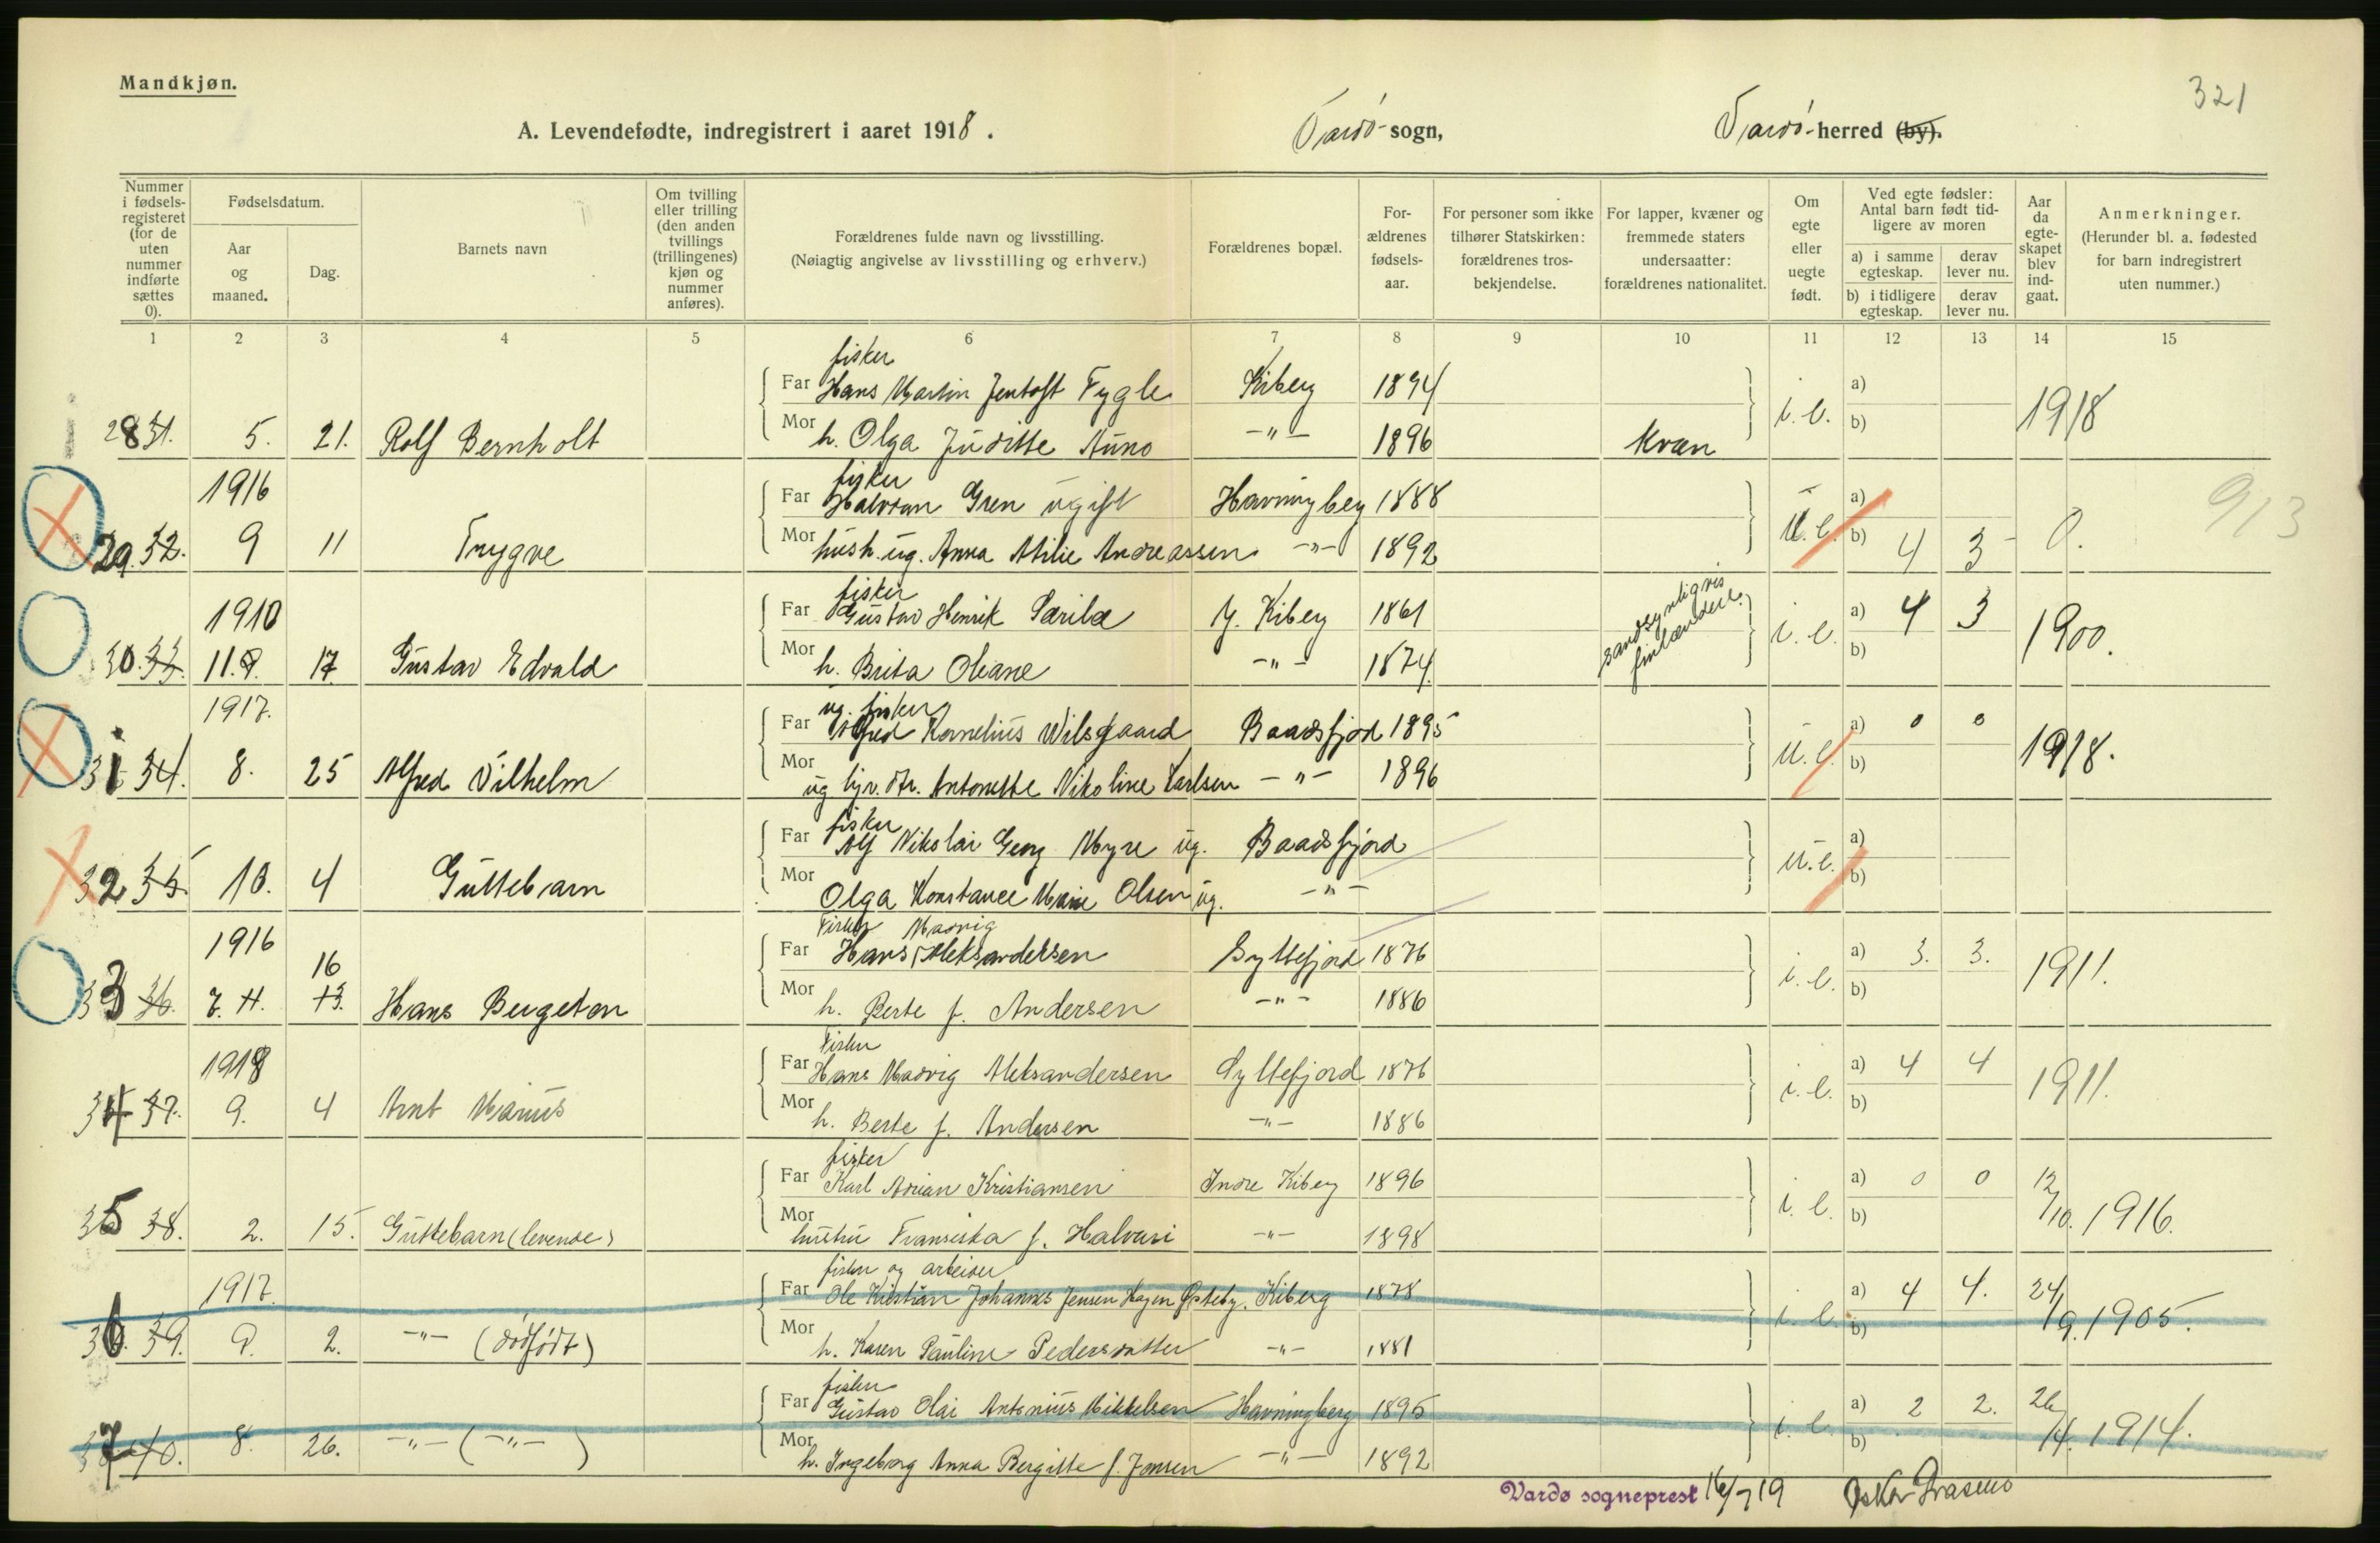 Mandkjøn.
321
A. Levendefødte, indregistrert i aaret 1918. Vardø sogn, Vardø herred (by).
Nummer i fødselsregisteret (for de uten nummer indførte sættes 0).
Fødselsdatum.
Aar og maaned.
Dag.
Barnets navn
Om tvilling eller trilling (den anden tvillings (trillingenes) kjøn og nummer anføres).
Forældrenes fulde navn og livsstilling.
(Nøiagtig angivelse av livsstilling og erhverv.)
Forældrenes bopæl.
Forældrenes fødselsaar.
For personer som ikke tilhører Statskirken: forældrenes trosbekjendelse.
For lapper, kvæner og fremmede staters undersaatter: forældrenes nationalitet.
Om egte eller uegte født.
Ved egte fødsler: Antal barn født tidligere av moren
a) i samme egteskap.
derav lever nu.
b) i tidligere egteskap.
derav lever nu.
Aar da egteskapet blev indgaat.
Anmerkninger.
(Herunder bl. a. fødested for barn indregistrert uten nummer.)
1 2 3 4 5 6 7 8 9 10 11 12 13 14 15
fisker
Far Hans Martin Jentoft Fygle Kiberg 1894 a)
28 31. 5. 21. Rolf Bernholt i. e. 1918
Mor h. Olga Juditte Auno -"- 1896 kvæn b)
1916
fisker
Far Halvdan Gren ugift Havningberg 1888 a)
29. 32. 9 11 Trygve u. e. 0. 913
Mor hush. ug. Anna Milie Andreassen -"- 1892 b) 4 3
1910
fisker
Far Gustav Henrik Sarila Y. Kiberg 1861 sandsynligvis finlændere. a) 4 3
30. 33. 11. 9. 17 Gustav Edvald i. e. 1900.
Mor h. Brita Oleane -"- 1874. b)
1917.
ug. fisker
Far Alfred Kornelius Wilsgaard Baadsfjord 1895 a) 0 0
31 34. 8. 25 Alfred Vilhelm u. e. 1918.
Mor ug tjr. dtr. Antonette Nikoline Karlsen -"- 1896 b)
fisker
Far Alf Nikolai Georg Myre ug. Baadsfjord a)
32 35 10. 4 Guttebarn u. e.
Mor Olga Konstance Marie Olsen ug. -"- b)
1916
Fisker Madvig
Far Hans Aleksandersen Syltefjord 1876 a) 3. 3.
33 36. 7. 11. 16 13. Hans Bergeton i. e. 1911.
Mor h. Berte f. Andersen -"- 1886 b)
1918
Fisker
Far Hans Madvig Aleksandersen Syltefjord 1876 a) 4 4
34 37. 9. 4 Arnt Marius i. e. 1911.
Mor h. Berte f. Andersen -"- 1886 b)
fisker
Far Karl Adrian Kristiansen Indre Kiberg 1896 a) 0 0
35 38. 2. 15. Guttebarn (levende) i. e. 12/10. 1916.
Mor hustru Fransiska f. Halvari -"- 1898 b)
1917.
fisker og arbeider
Far Ole Kristian Johannes Jensen Hagen Østeby. Kiberg 1878 a) 4 4.
36. 39. 9. 2. -"- (dødfødt) i. e. 24/9. 1905.
Mor h. Karen Pauline Pedersdatter -"- 1881 b)
fisker
Far Gustav Olai Antonius Mikkelsen Havningberg 1895 a) 2 2.
37 40. 8. 26. -"- (-"-) i. e. 26/4. 1914.
Mor h. Ingeborg Anna Bergitte f. Jensen -"- 1892 b)
Vardø sogneprest 16/7 19